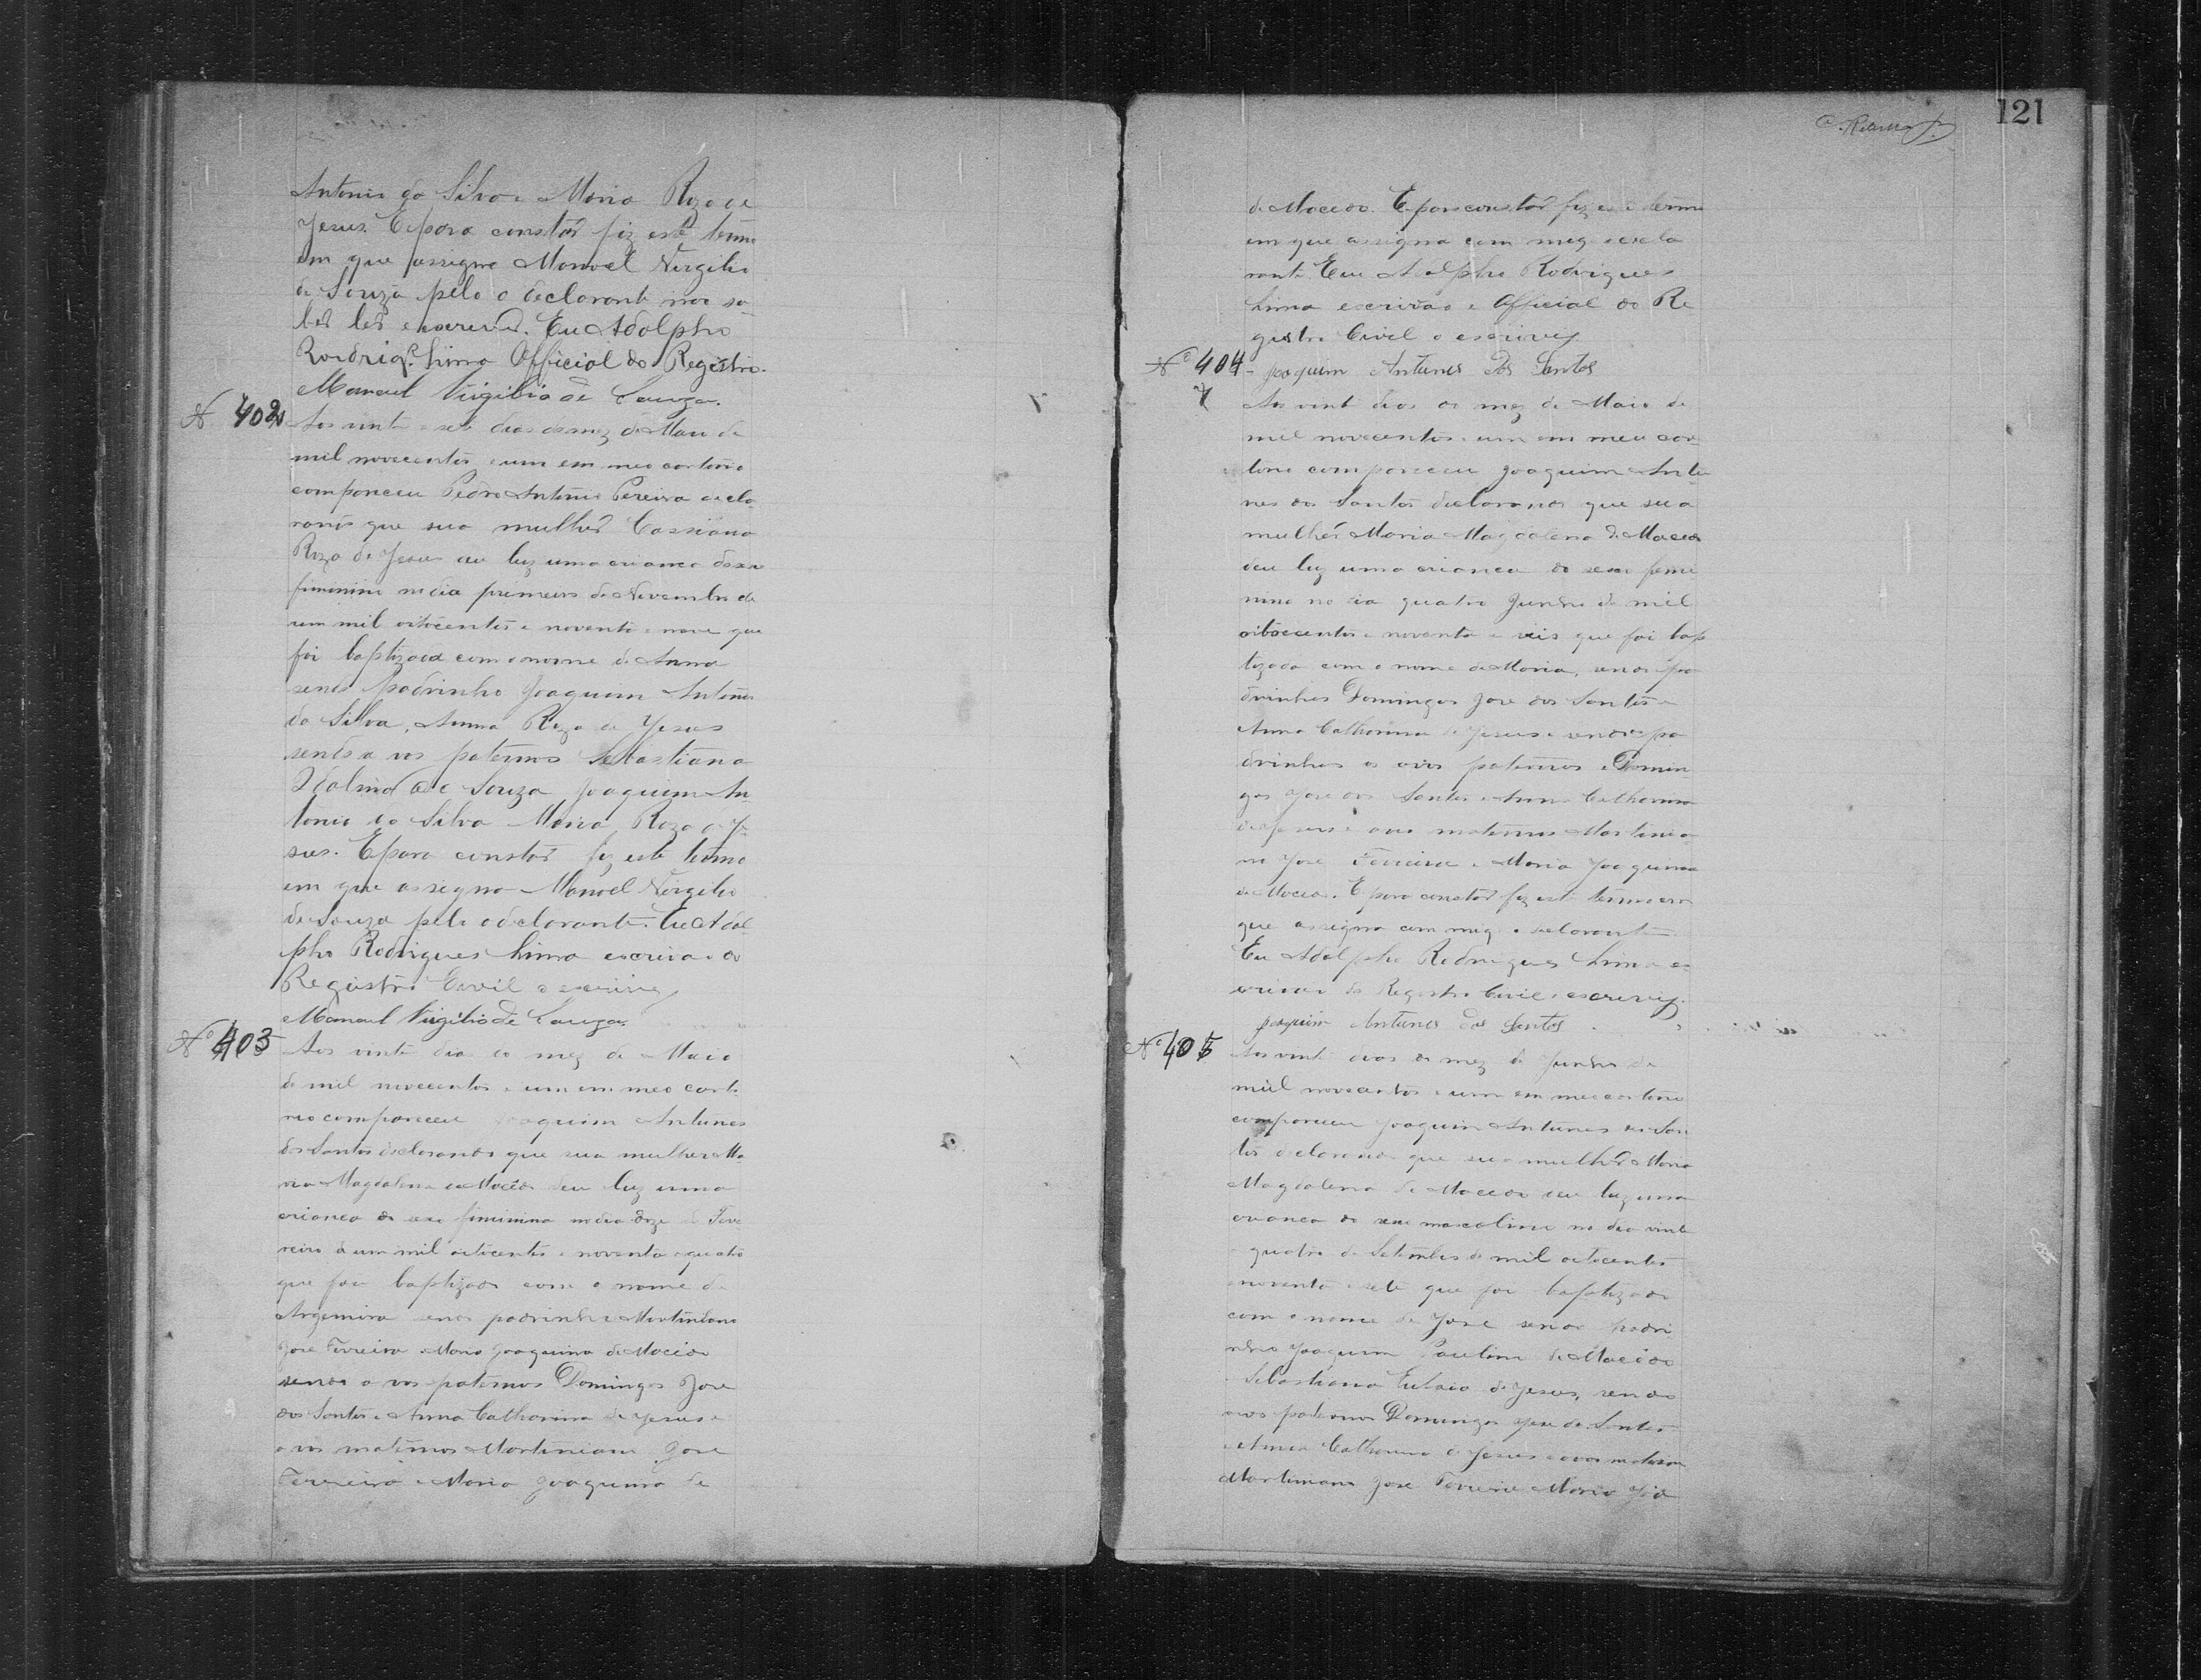 Antonio da Silva e Maria Roza de
Jesus. E para constar fiz este termo
em que assigna Manoel Virgilio
de Souza pelo o declarante não sa-
ber ler e escrever. Eu Adolpho
Roidrigs. Lima Official do Registro.
Manoel Virgilio de Souza.
Nº 402
Aos vinte e sete dias do mez de Maio de
mil novecentos e um em meo cartorio
compareceu Pedro Antonio Pereira decla-
rando que sua mulher Cassiana
Roza de Jesus deu luz uma crianca do sexo
feminino no dia primeiro de Novembro de
um mil oitocentos e noventa e nove que
foi baptizada com o nome de Anna
sendo padrinho Joaquim Antonio
da Silva, Anna Roza de Jesus
sendo a vos paternos Sebastiana
de Souza Joaquim An-
tonio da Silva Maria Roza de Je-
sus. E para constar fiz este termo
em que assigna Manoel Virgilio
de Souza pelo o declarante. Eu Adol-
pho Rodrigues Lima escrivão do
Registro Civil o escrivy
Manoel Virgilio de Souza.
Nº 403
Aos vinte dias do mez de Maio
de mil novecentos e um em meo carto-
rio compareceu Joaquim Antunes
dos Santos declarando que sua mulher Ma-
ria Magdalena de Macedo deu luz uma
crianca do sexo feminina no dia doze de Feve
reiro de um mil oitocentos e noventa e quatro
que foi baptizada com o nome de
Argemira sendo padrinho Martiniano
Jose Ferreira e Maria Joaquina de Macedo
sendo a vos paternos Domingos Jose
dos Santos e Anna Catharina de Jesus e
a vos maternos Martiniano Jose
Ferreira e Maria Joaquina de
121
de Macedo. E para constar fiz este termo
em que assigna com migo o decla
rante. Eu Adolpho Rodrigues
Lima escrivão e Official do Re
gistro Civil o escrivy
Joaquim Antunes dos Santos
Nº 404
Aos vinte dias do mez de Maio de
mil novecentos e um em meu car
torio compareceu Joaquim Antu
nes dos Santos declarando que sua
mulher Maria Magdalena de Macedo
deu luz uma crianca do sexo femi
nino no dia quatro Junho de mil
oitocentos e noventa e seis que foi bap
tizada com o nome de Maria, sendo pa
drinhos Domingos Jose dos Santos e
Anna Catharina de Jesus e sendo pa
drinhos os avos paternos e Domin
gos Jose dos Santos e Anna Catharina
de Jesus e avos maternos Martinia
no Jose Ferreira e Maria Joaquina
de Macedo. E para constar fiz este termo em
que assigna com migo o declarante
Eu Adolpho Rodrigues Lima es
crivão do Registro Civil o escrevy.
Joaquim Antunes dos Santos
Nº 405
Aos vinte dias do mez de Junho de
mil novecentos e um em meo cartorio
compareceu Joaquim Antunes dos San
tos declarando que sua mulher Maria
Magdalena de Macedo deu luz uma
crianca do sexo masculino no dia vinte
quatro de Setembro de mil oitocentos
e noventa e sete que foi baptizado
com o nome de Jose sendo padri
nho Joaquim Paulino de Macedo
Sebastiana de Jesus, sendo
avos paternos Domingos Jose dos Santos
e Anna Catharina de Jesus e avos maternos
Martiniano Jose Ferreira e Maria Joa